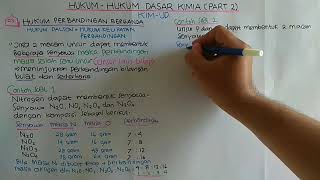 HUKUM - HUKUM DASAR KIMIA (PART 2)
KIM-UD
HUKUM PERBANDINGAN BERGANDA
HUKUM DALTON = HUKUM KELIPATAN
PERBANDINGAN
"Jika 2 macam unsur dapat membentuk
beberapa senyawa maka perbandingan
massa salah satu unsur
bulat dan sederhana"
Contoh soal 1
Nitrogen dapat membentuk senyawa-
senyawa N2O, NO, N2O3, N2O4
dengan komposisi
Senyawa Massa N Massa O
N2O 28 gram 16 gram 7 : 4
NO 14 gram 16 gram 7 : 8
N2O3 28 gram 48 gram 7 : 12
N2O4 28 gram 64 gram 7 : 16
Contoh soal 2
Unsur P dan Q dapat membentuk 2 macam
senyawa